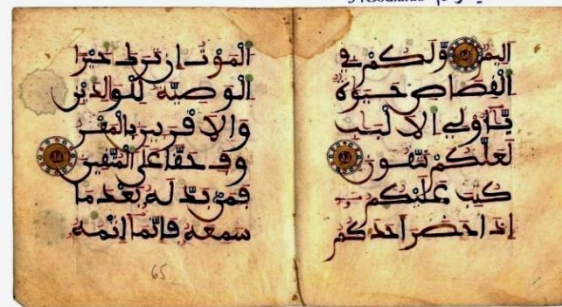 اليم وَلَكُمْ فِي
الْقِصَاصِ حَيَوٰةٌ
يَٰٓأُوْلِي الَالْبَٰبِ
لَعَلَّكُمْ تَتَّقُونَ
كُتِبَ عَلَيْكُمُ
إِذَا حَضَرَ أَحَدَكُمُ
الْمَوْتُ إِن تَرَكَ خَيْرًا
الْوَصِيَّةُ لِلْوَٰلِدَيْنِ
وَالَاقْرَبِينَ بِالْمَعْرُ
وفِ حَقًّا عَلَى الْمُتَّقِينَ
فَمَنۢ بَدَّلَهُ بَعْدَ مَا
سَمِعَهُ فَإِنَّمَا إِثْمُهُ
65